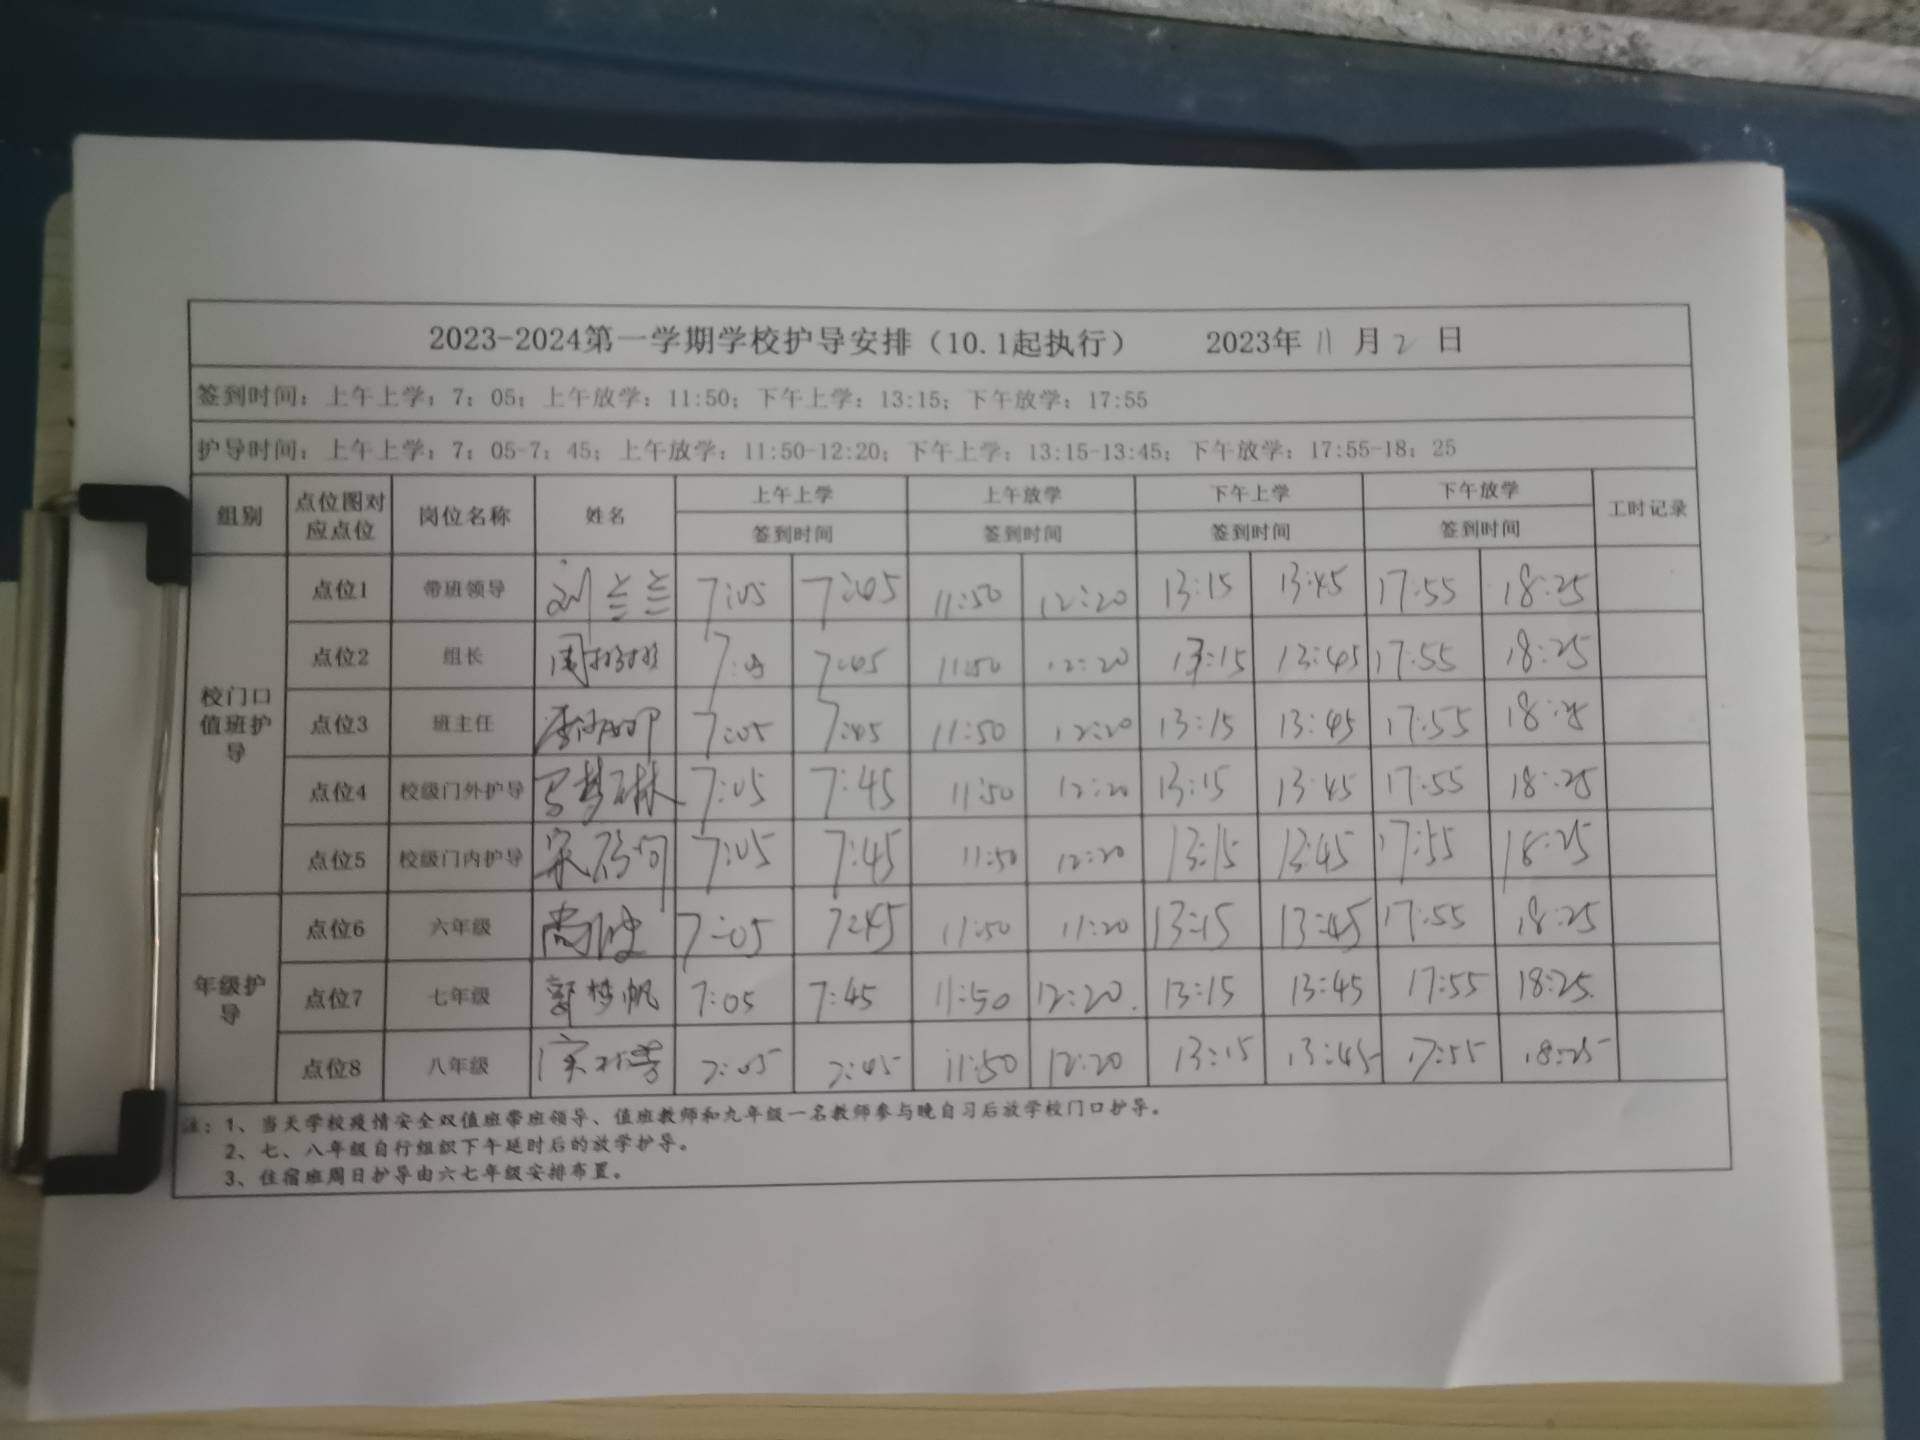 2023-2024第一学期学校护导安排（10.1起执行） 2023年 11 月 2 日
签到时间：上午上学：7：05；上午放学：11:50；下午上学：13:15；下午放学：17:55
护导时间：上午上学：7：05-7：45；上午放学：11:50-12:20；下午上学：13:15-13:45；下午放学：17:55-18：25
组别 点位图对应点位 岗位名称 姓名 上午上学 上午放学 下午上学 下午放学 工时记录
签到时间 签到时间 签到时间 签到时间
校门口值班护导
点位1 带班领导 刘兰兰 7:05 7:45 11:50 12:20 13:15 13:45 17:55 18:25
点位2 组长 周 7:05 7:45 11:50 12:20 13:15 13:45 17:55 18:25
点位3 班主任 7:05 7:45 11:50 12:20 13:15 13:45 17:55 18:25
点位4 校级门外护导 马梦林 7:05 7:45 11:50 12:20 13:15 13:45 17:55 18:25
点位5 校级门内护导 宋 7:05 7:45 11:50 12:20 13:15 13:45 17:55 18:25
年级护导
点位6 六年级 尚 7:05 7:45 11:50 11:20 13:15 13:45 17:55 18:25
点位7 七年级 郭梦帆 7:05 7:45 11:50 12:20. 13:15 13:45 17:55 18:25.
点位8 八年级 宋 7:05 7:45 11:50 12:20 13:15 13:45 17:55 18:25
注：1、当天学校疫情安全双值班带班领导、值班教师和九年级一名教师参与晚自习后放学校门口护导。
2、七、八年级自行组织下午延时后的放学护导。
3、住宿班周日护导由六七年级安排布置。